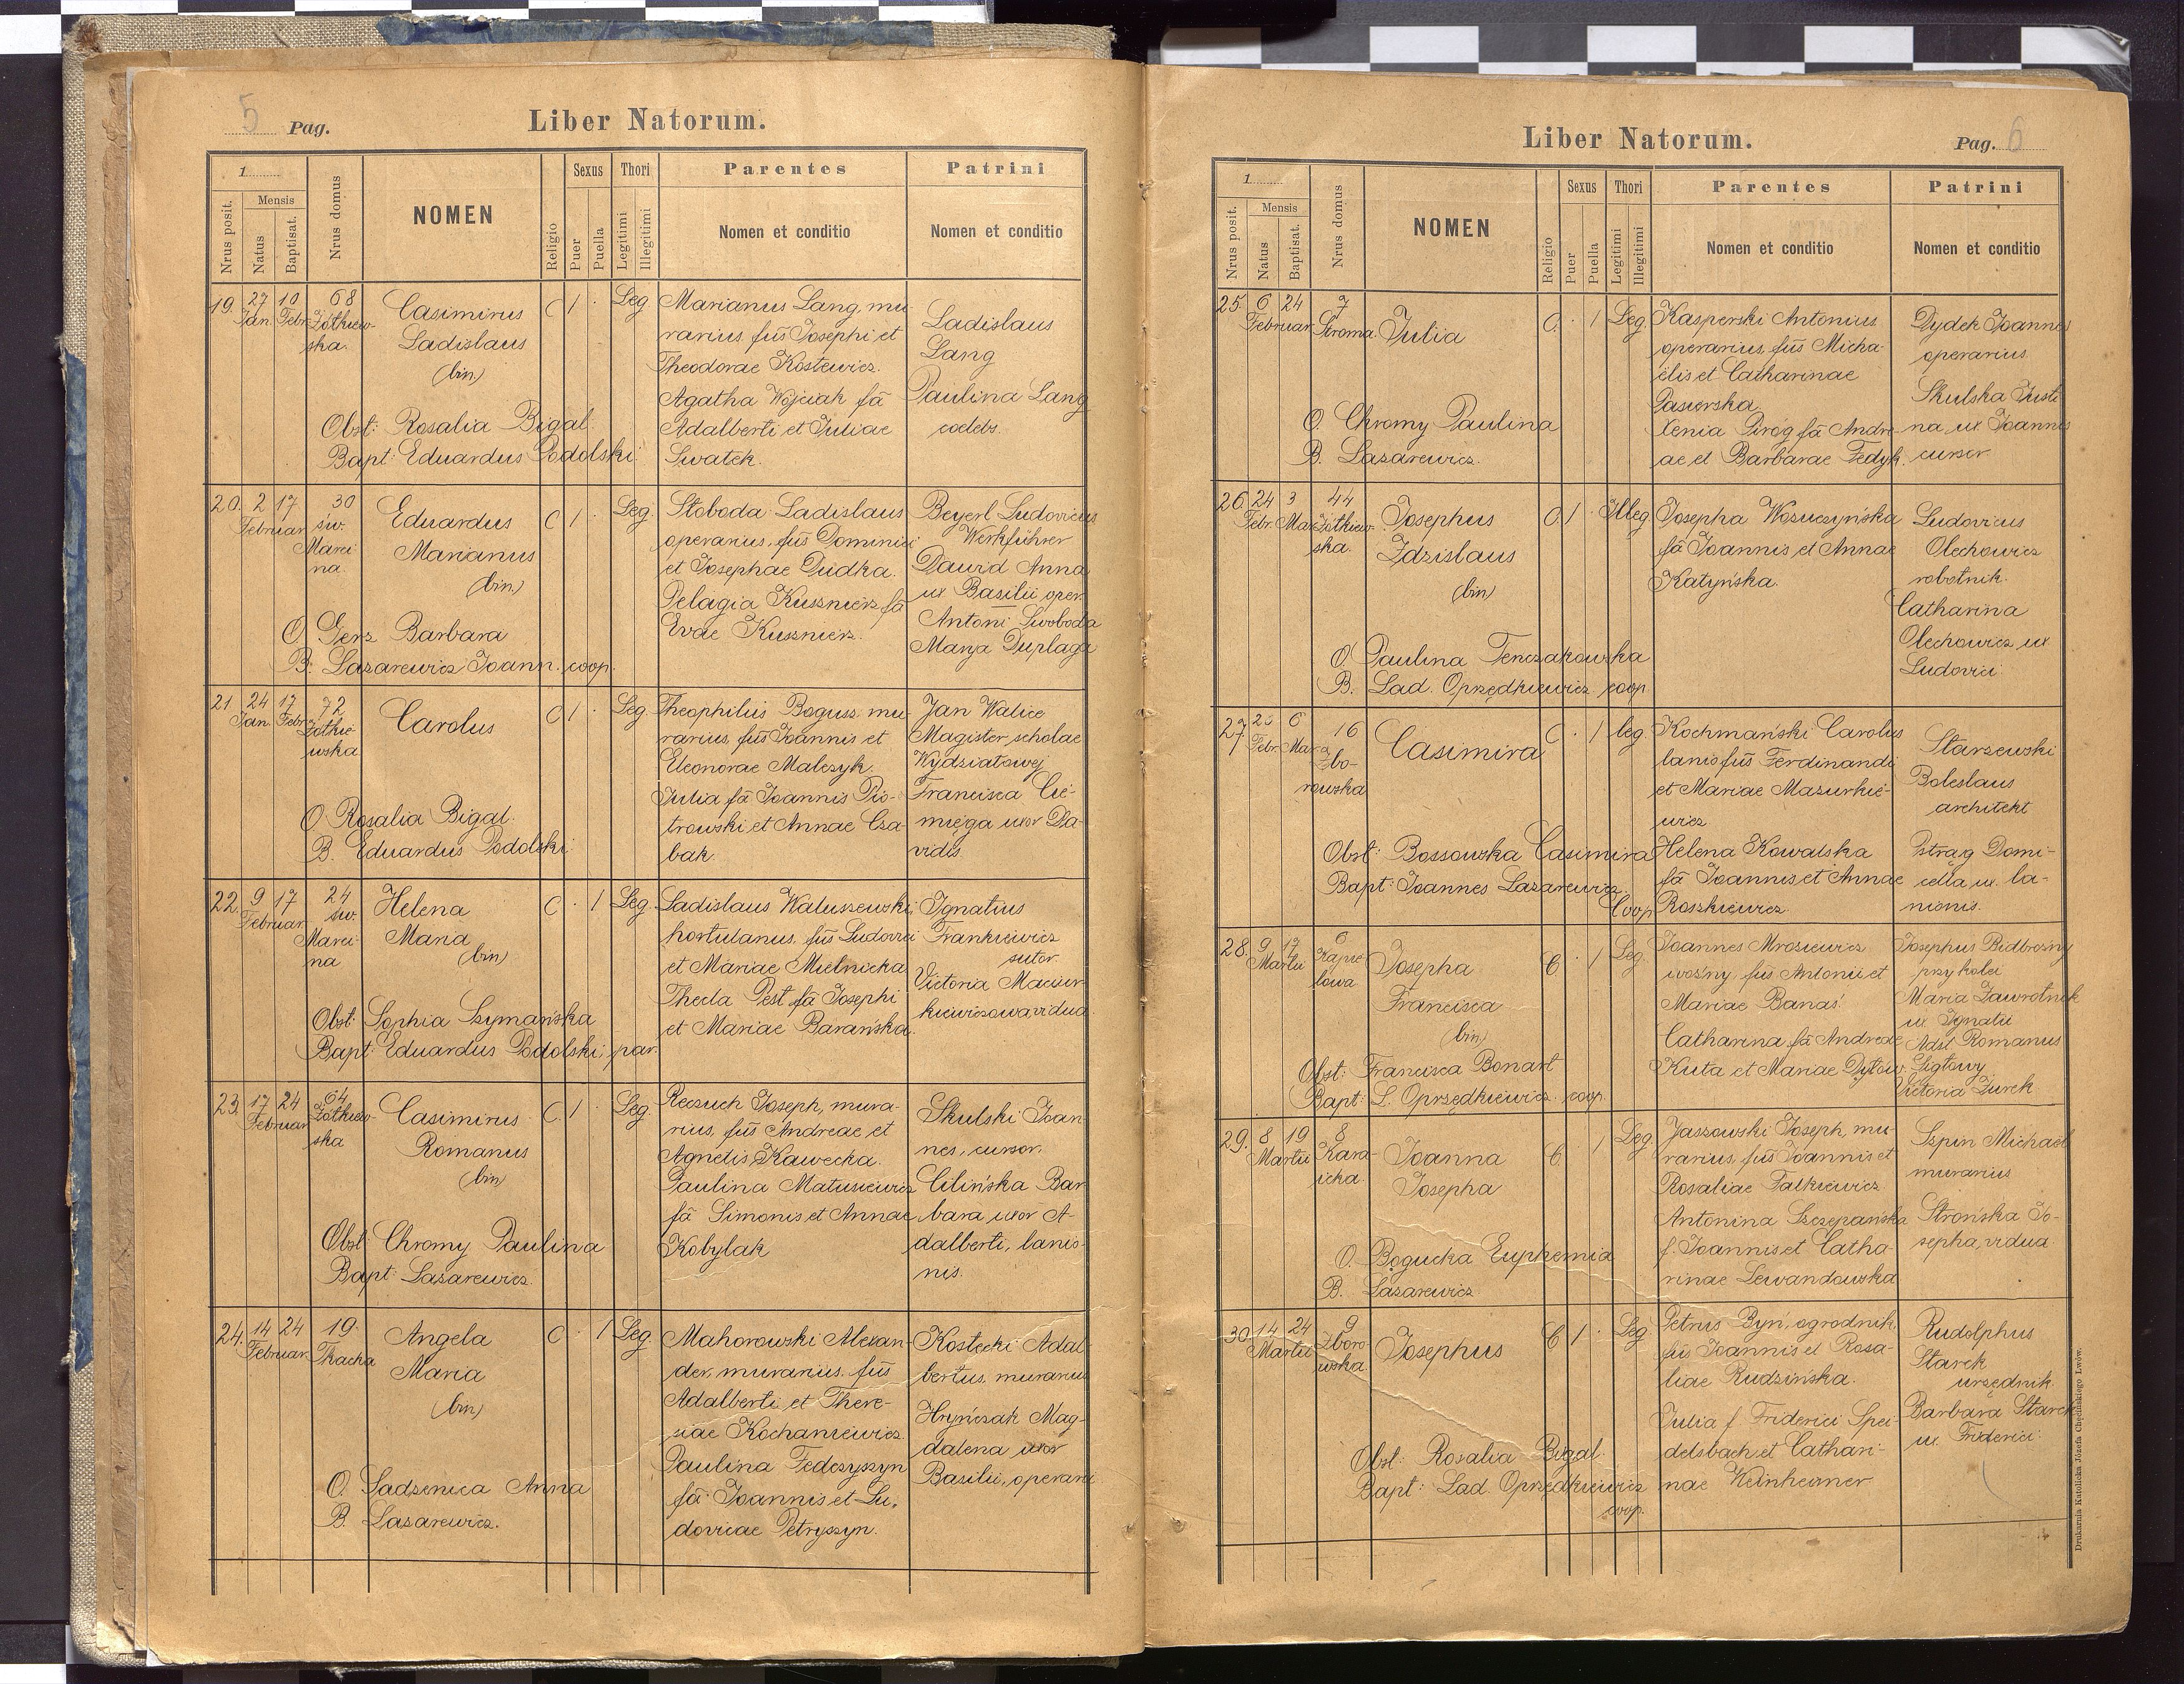 5 Pag.
Liber Natorum.
1
Nrus posit.
Mensis
Natus
Baptisat.
Nrus domus
NOMEN
Religio
Sexus
Puer
Puella
Thori
Legitimi
Illegitimi
Parentes
Nomen et conditio
Patrini
Nomen et conditio
19. 27 10 68
Jan. Febr. Żółkiew-
ska.
Casimirus
Ladislaus
(bin.)
C 1 · Leg.
Obst: Rosalia Bigal.
Bapt: Eduardus Podolski.
Marianus Lang, mu-
rarius, fus Josephi et
Theodorae Kostewicz.
Agatha Wójciak fa
Adalberti et Juliae
Swatek.
Ladislaus
Lang
Paulina Lang
coelebs.
20. 2 17 30
Februar. św.
Marci
na
Eduardus
Marianus
(bin.)
C 1 · Leg.
O Gerz Barbara
B. Lazarewicz Joann. coop.
Słoboda Ladislaus
operarius, fus Dominici
et Josephae Dudka.
Pelagia Kusznierz fa
Evae Kusznierz.
Beyerl Ludovicus
Werkführer
Dawid Anna
ux Basilii oper.
Antoni Swoboda
Marya Duplaga
21. 24 17 72
Jan. Febr. Żółkie-
wska
Carolus
C 1 · Leg.
O Rosalia Bigal.
B. Eduardus Podolski
Theophilus Bogusz, mu-
rarius, fus Joannis et
Eleonorae Malczyk.
Julia fa Joannis Pio-
trowski et Annae Cza-
bak.
Jan Walice
Magister scholae
Wydziałowej
Francisca Cie-
mięga uxor Da-
vidis.
22. 9 17 24
Februar. św.
Marci
na
Helena
Maria
(bin)
C · 1 Leg.
Obst: Sophia Szymańska
Bapt: Eduardus Podolski, par.
Ladislaus Waluszewski,
hortulanus, fus Ludovici
et Mariae Mielnicka
Thecla Pest fa Josephi
et Mariae Barańska.
Ignatius
Frankiewicz
sutor.
Victoria Maciur-
kiewiczowa vidua.
23. 17 24 64
Februar. Żółkiew-
ska
Casimirus
Romanus
(bin)
C. 1 · Leg.
Obst: Chromy Paulina
Bapt: Lazarewicz.
Reczuch Joseph, mura-
rius, fus Andreae et
Agnetis Kawecka.
Paulina Matusiewicz
fa Simonis et Annae
Kobylak
Skulski Joan-
nes, cursor.
Cilińska Bar-
bara uxor A-
dalberti, lanio-
nis.
24. 14 24 19
Februar. Tkacka
Angela
Maria
(bin)
C · 1 Leg.
O. Sadzenica Anna
B. Lazarewicz.
Mahorowski Alexan-
der, murarius, fus
Adalberti et There-
siae Kochaniewicz.
Paulina Fedczyszyn
fa Joannis et Lu-
dovicae Petryszyn.
Kostecki Adal-
bertus, murarius
Hryńczak Mag-
dalena uxor
Basilii, operarii
Liber Natorum.
Pag. 6
1
Nrus posit.
Mensis
Natus
Baptisat.
Nrus domus
NOMEN
Religio
Sexus
Puer
Puella
Thori
Legitimi
Illegitimi
Parentes
Nomen et conditio
Patrini
Nomen et conditio
25. 6 24 7
Februar. Stroma
Julia
C. · 1 Leg.
O. Chromy Paulina
B. Lazarewicz.
Kasperski Antonius
operarius, fus Micha-
elis et Catharinae
Pasierska
Xenia Piróg fa Andre-
ae et Barbarae Fedyk.
Dydek Joannes
operarius.
Skulska Justi-
na, ux Joannis
cursor.
26. 24 3 44
Febr. Mar. Żółkiew-
ska.
Josephus
Zdzislaus
(bin)
C. 1 · Illeg.
O. Paulina Tenczakowska
B. Lad. Oprzędkiewicz coop.
Josepha Woźuczyńska
fa Joannis et Annae
Katyńska.
Ludovicus
Olechowicz
robotnik.
Catharina
Olechowicz ux
Ludovici
27. 6 16
Febr. Mar. Zbo-
rowska
Casimira
C · 1 leg.
Obst: Bossowska Casimira
Bapt: Joannes Lazarewicz.
Coop.
Kochmański Carolus
lanio fus Ferdinandi
et Mariae Mazurkie-
wicz
Helena Kowalska
fa Joannis et Annae
Roszkiewicz.
Starzewski
Boleslaus
architekt
Pstrąg Domi-
cella, ux. la-
nionis.
28. 9 17 6
Martii Kąpie-
lowa
Josepha
Francisca
(bin)
C · 1 Leg.
Obst: Francisca Bonart
Bapt: L. Oprzędkiewicz. coop.
Joannes Mroziewicz
woźny, fus Antonii et
Mariae Banaś.
Catharina fa Andreae
Kuta et Mariae Dyłów.
Josephus Bidbrozny
przy kolei
Maria Zawrotnik
ux Ignatii
Adst Romanus
Ligłowy
Victoria Żurek
29. 8 19 8
Martii Kara-
icka
Joanna
Josepha
C · 1 Leg.
O. Bogucka Euphemia
B. Lazarewicz
Jaszowski Joseph, mu-
rarius, fus Joannis et
Rosaliae Falkiewicz
Antonina Szczepańska
f. Joannis et Catha-
rinae Lewandowska
Szpin Michael
murarius
Strońska Jo-
sepha, vidua
30. 14 24 9
Martii Zboro-
wska
Josephus
C 1 · Leg.
Obst: Rosalia Bigal.
Bapt: Lad. Oprzędkiewicz
coop.
Petrus Byń, ogrodnik,
fus Joannis et Rosa-
liae Rudzińska.
Julia f. Friderici Spei-
delsbach et Cathari-
nae Weinheimer
Rudolphus
Starek
urzędnik.
Barbara Starek
ux. Friderici.
Drukarnia Katolicka Józefa Chęcińskiego Lwów.